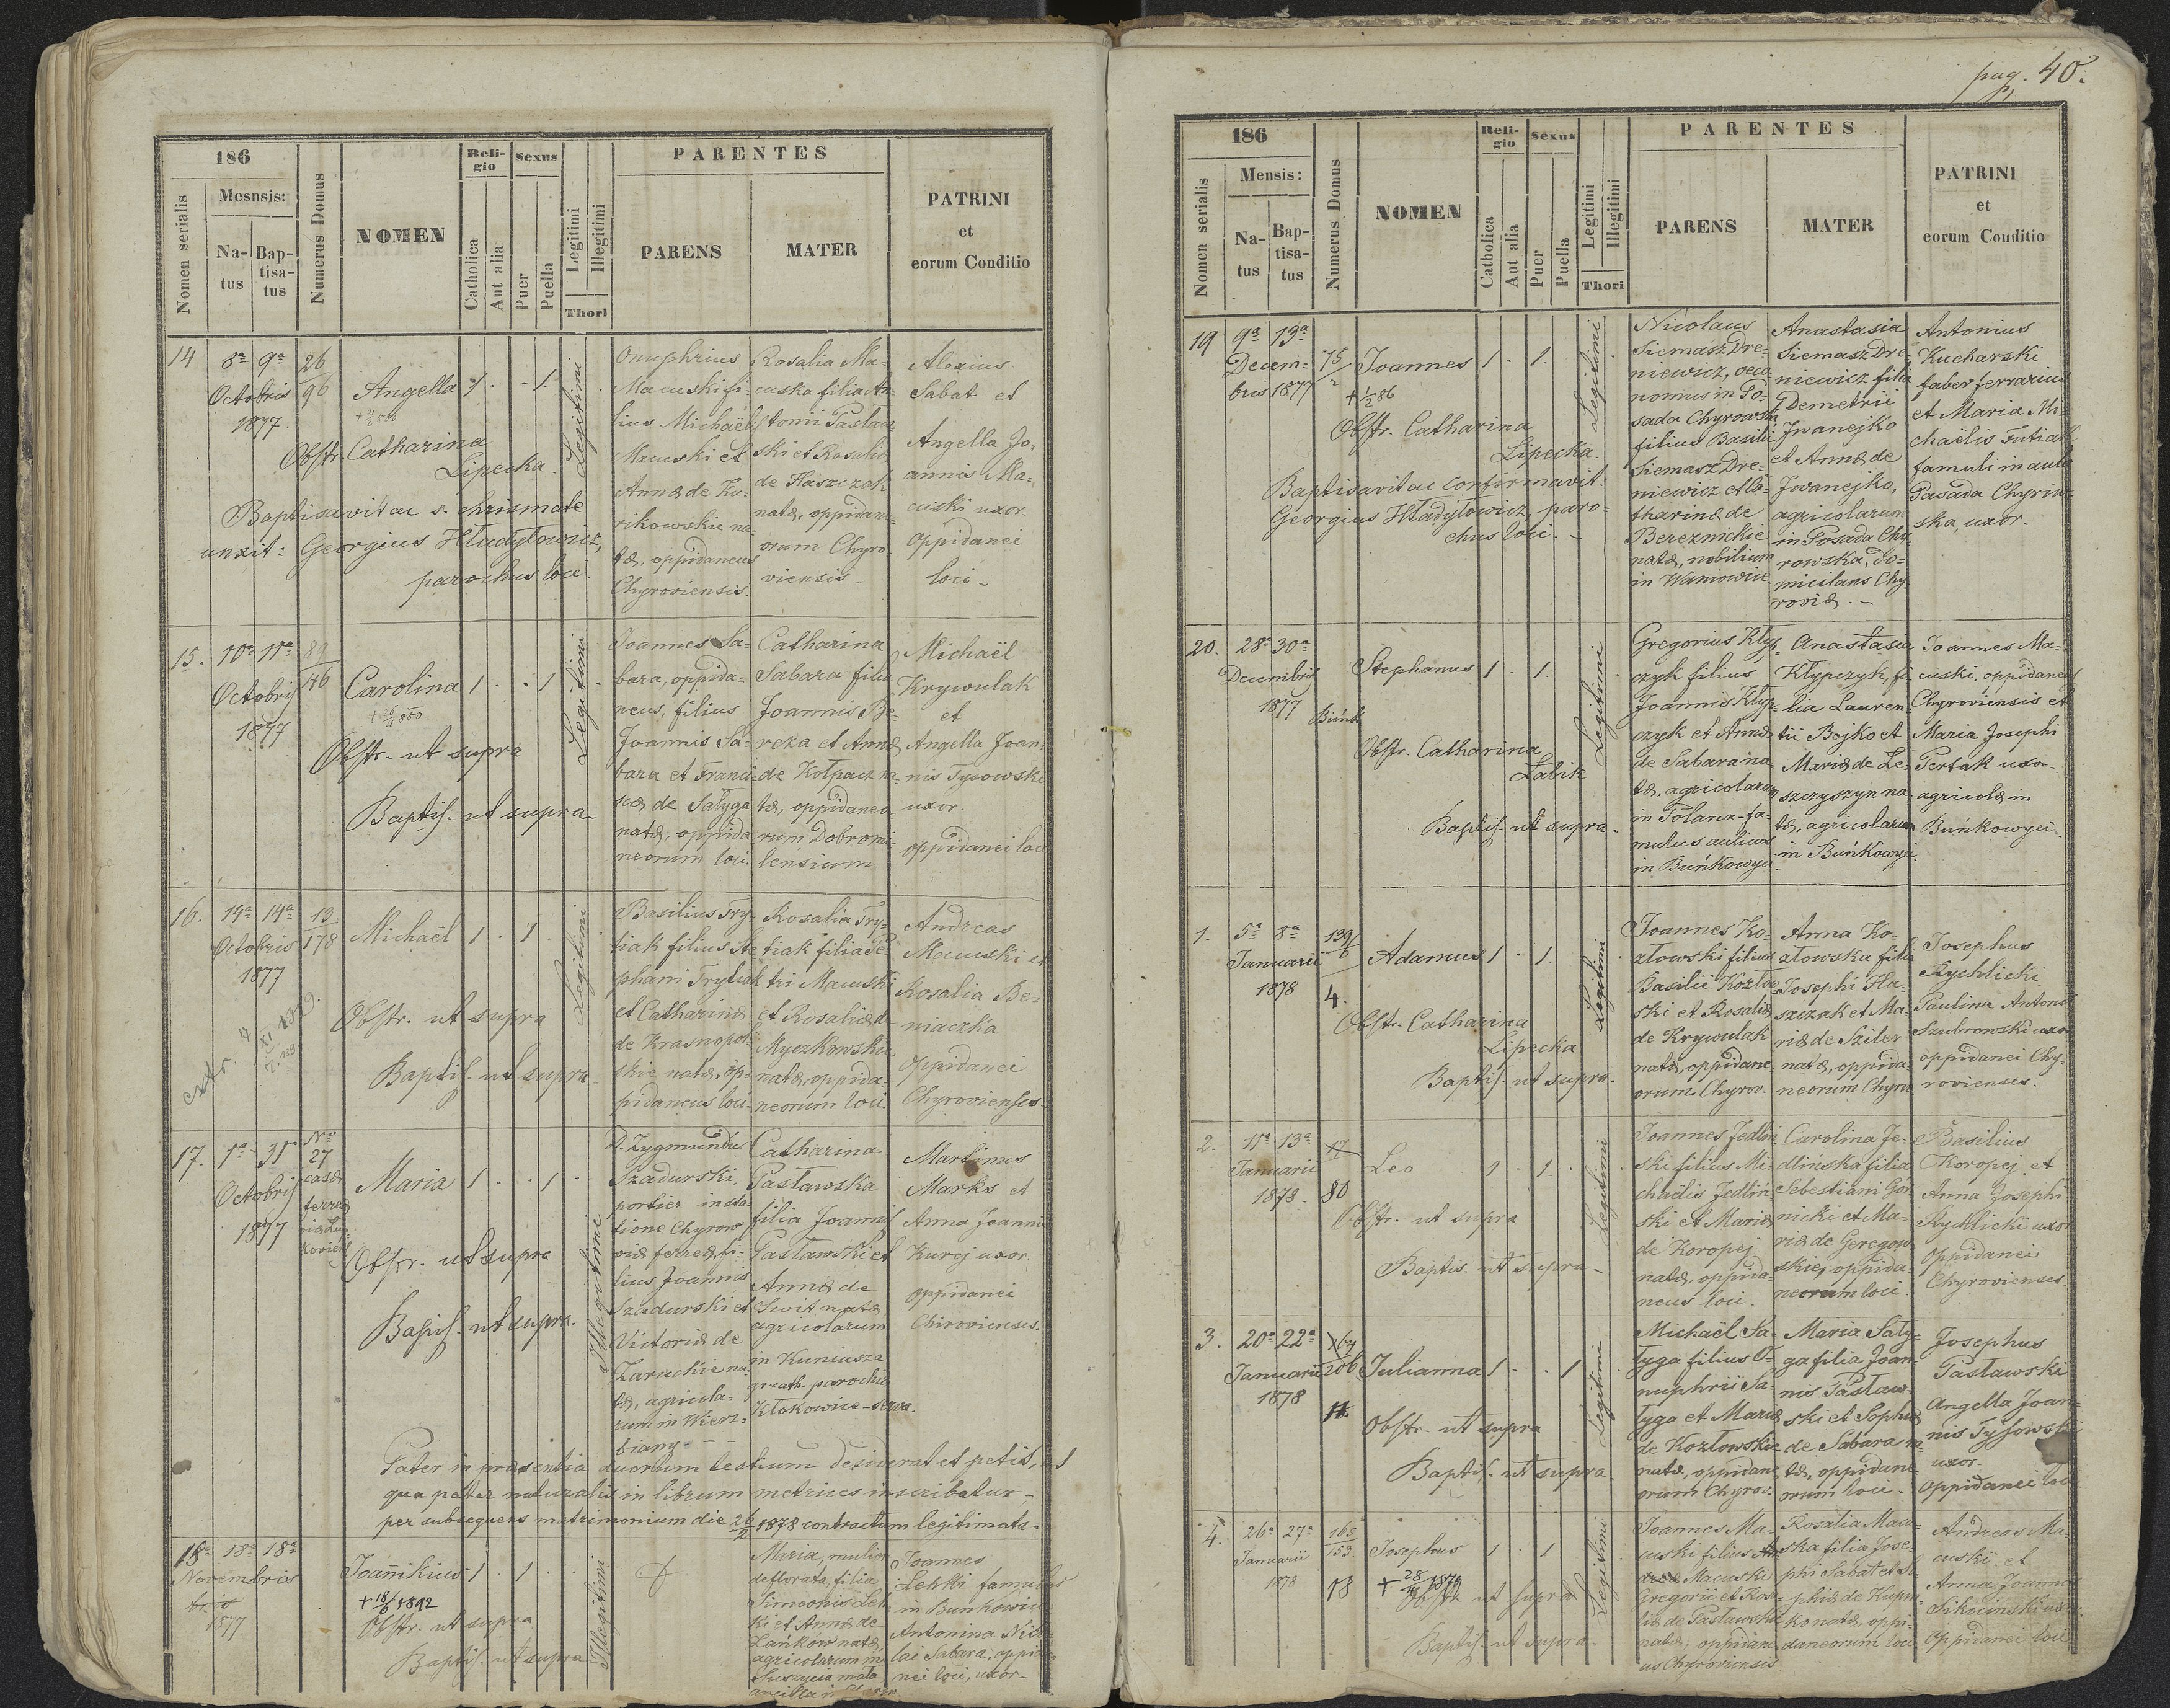 186
Mesnsis:
Nomen serialis
Na-
tus
Bap-
tisa-
tus
Numerus Domus
NOMEN
Reli-
gio
Catholica
Aut alia
Sexus
Puer
Puella
Legitimi
Illegitimi
Thori
PARENTES
PARENS
MATER
PATRINI
et
eorum Conditio
14
8ª 9ª
Octobris
1877.
26
96
Angella 1 . - 1.
Obstr. Catharina
Lipecka.
Baptisavit ac s. chrismate
unxit: Georgius Hładyłowicz,
parochus loci.
Legitimi
Onuphrius
Macuski fi-
lius Michaëlis
Macuski et
Annæ de Ku-
rikowskie na-
tæ, oppidaneus
Chyroviensis.
Rosalia Ma-
cuska filia An-
tonii Pasław-
ski et Rosaliæ
de Haszczak
natæ, oppidane-
orum Chyro
viensis
Alexius
Sabat et
Angella Jo-
annis Ma-
cuski uxor.
Oppidanei
loci -
15. 10ª 11ª
Octobris
1877
89
46
Carolina 1 . . 1
+ 26 1880
Obstr. ut supra
Baptis. ut supra
Legitimi
Joannes Sa-
bara, oppida-
neus, filius
Joannis Sa-
bara et Francis-
cæ de Sałyga
natæ, oppida
neorum loci.
Catharina
Sabara filia
Joannis Be-
reza et Annæ
de Kołpacz na-
tæ, oppidaneo
rum Dobromi-
lensium
Michaël
Krywulak
et
Angella Joan-
nis Tysowski
uxor.
oppidanei loci
16. 14ª 14ª
Octobris
1877
13
178
Michaël 1 . 1
Obstr. ut supra
Baptis. ut supra.
Legitimi
Basilius Try-
tiak filius Ste
phani Trytiak
et Catharinæ
de Krasnopol-
skie natæ, op-
pidaneus loci.
Rosalia Try-
tiak filia Pe-
tri Macuski
et Rosaliæ de
Myczkowskie
natæ, oppida-
neorum loci.
Andreas
Macuski et
Rosalia Be-
niaczka
Oppidanei
Chyrovienses.
17. 1ª 31
Octobris
1877
Nº
27
casæ
ferreæ
Maria 1 . . 1
Obstr. ut supra
Baptis. ut supra.
Illegitimi
D. Zygmundus
Szadurski,
portier in sta-
tione Chyrow
viæ ferreæ, fi-
lius Joannis
Szadurski et
Victoriæ de
Zaruckie na
tæ, agricola-
rum in Wierz-
biany - -
Catharina
Pasławska
filia Joannis
Pasławski et
Annæ de
Swit natæ
agricolarum
in Kuniusza
gr. cath. parochiæ
Kłokowice - serva.
Martinus
Marks et
Anna Joannis
Kurej uxor.
oppidanei
Chirovienses.
Pater in præsentia duorum testium desiderat et petit, ut
qua pater naturalis in librum metrices inscribatur -
per subsequens matrimonium die 26/2 1878 contractum legitimata.
18ª 18ª 18ª
Novembris
1877
Joannikius 1 . 1
+ 18/6 1892
Obstr. ut supra
Baptis. ut supra
Illegitimi
Maria, mulier
deflorata, filia
Simeonis Leh-
ki et Annæ de
Łańków natæ
agricolarum in
Suszycia mała
Joannes
Lehki famulus
in Bunkowice
Antonina Nico-
lai Sabara, oppida-
nei loci, uxor -
pag. 40.
186
Mensis:
Nomen serialis
Na-
tus
Bap-
tisa-
tus
Numerus Domus
NOMEN
Reli-
gio
Catholica
Aut alia
Sexus
Puer
Puella
Legitimi
Illegitimi
Thori
PARENTES
PARENS
MATER
PATRINI
et
eorum Conditio
19 9ª 13ª
Decem-
bris 1877
75
2
Joannes 1 . 1.
+ 1/2 86
Obstr. Catharina
Lipecka.
Baptisavit ac confirmavit:
Georgius Hładyłowicz, paro-
chus loci. -
Legitimi
Nicolaus
Siemasz Dre-
niewicz, oeco-
nomus in Po-
sada Chyrowska
filius Basilii
Siemasz Dre-
niewicz et Ca-
tharinæ de
Bereznickie
natæ, nobilium
in Waniowice
Anastasia
Siemasz Dre-
niewicz filia
Demetrii
Iwanejko
et Annæ de
Iwanejko,
agricolarum
in Posada Chy
rowska, do-
micilans Chy-
roviæ. -
Antonius
Kucharski
faber ferrarius
et Maria Mi-
chaëlis Futiak
famuli in aula
Posada Chyrow-
ska, uxor.
20. 28ª 30ª
Decembris
1877
Stephanus 1 . 1.
Obstr. Catharina
Labik
Baptis. ut supra.
Legitimi
Gregorius Kłyp-
czyk filius
Joannis Kłyp-
czyk et Annæ
de Sabara na-
tæ, agricolarum
in Polana - fa-
mulus aulicus
in Buńkowyci
Anastasia
Kłypczyk, fi-
lia Lauren-
tii Bojko et
Mariæ de Le-
szczyszyn na-
tæ, agricolarum
in Buńkowyci
Joannes Ma-
cuski, oppidaneus
Chyroviensis et
Maria Josephi
Pertak uxor.
agricolæ in
Buńkowyci.
1. 5ª 8ª
Januarii
1878
139
6
4.
Adamus 1 . 1.
Obstr. Catharina
Lipecka
Baptis. ut supra.
Legitimi
Joannes Ko-
złowski filius
Basilii Kozłow-
ski et Rosaliæ
de Krywulak
natæ, oppidane
orum Chyrov.
Anna Ko-
złowska filia
Josephi Ha-
szczak et Ma-
riæ de Sziler
natæ, oppida-
neorum Chyro
Josephus
Rychlicki
Paulina Antonii
Szubrowski uxor
oppidanei Chy-
rovienses.
2. 11ª 13ª
Januarii
1878.
17
80
Leo 1 . 1.
Obstr. ut supra
Baptis. ut supra -
Legitimi
Joannes Jedliń
ski filius Mi-
chaëlis Jedliń-
ski et Mariæ
de Koropej
natæ, oppida-
neus loci.
Carolina Je-
dlińska filia
Sebestiani Gór
nicki et Ma-
riæ de Geregow-
skie, oppida-
neorum loci
Basilius
Koropej et
Anna Josephi
Rychlicki uxor
Oppidanei
Chyrovienses
3. 20ª 22ª
Januarii
1878
206
11.
Julianna 1 . . 1
Obstr. ut supra
Baptis. ut supra.
Legitimi
Michaël Sa-
łyga filius O-
nuphrii Sa-
łyga et Mariæ
de Kozłowskie
natæ, oppidane
orum Chyrov.
Maria Sały-
ga filia Joan-
nis Pasław-
ski et Sophiæ
de Sabara na-
tæ, oppidane
orum loci.
Josephus
Pasławski
Angella Joan-
nis Tyssowski
uxor.
Oppidanei loci
4. 26ª 27ª
Januarii
1878
165
153
18
Josephus 1 . 1
Obstr. ut supra
Baptis. ut supra.
Legitimi
Joannes Ma-
cuski filius
Macuski
Gregorii et Rosa-
liæ de Pasławski
natæ, oppidane
us Chyroviensis
Rosalia Macu-
ska filia Jose-
phi Sabat et So-
phiæ de Kupn-
ko natæ, oppi-
daneorum loci
Andreas Ma-
cuski et
Anna Joannis
Sikociński uxor
Oppidanei loci